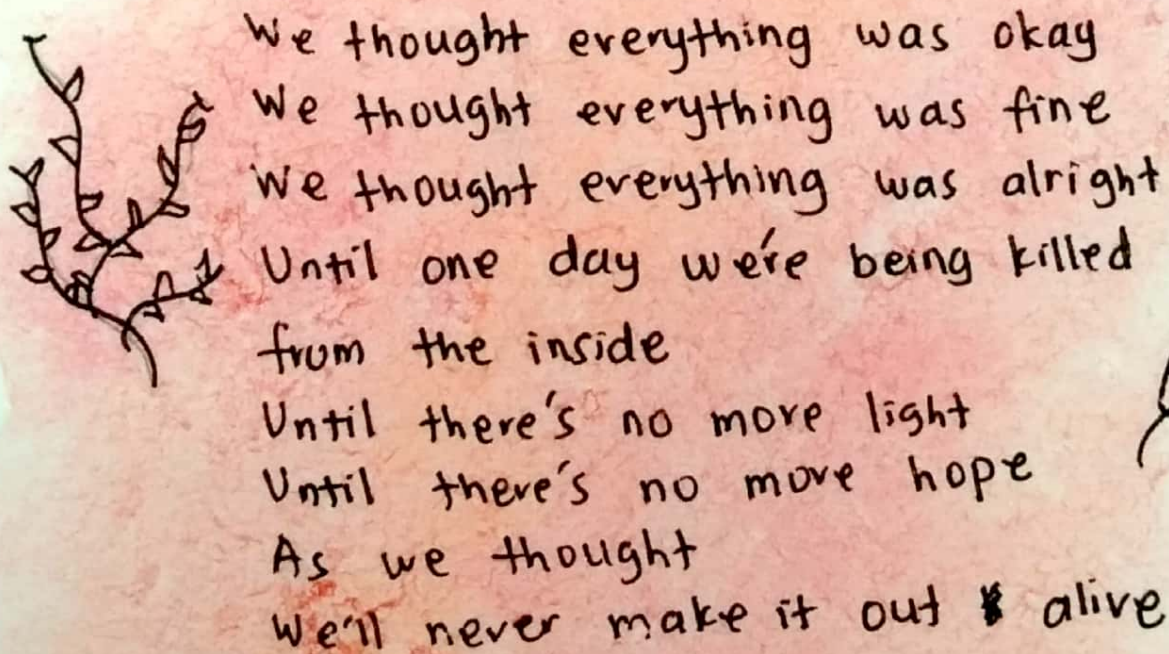 We thought everything was okay
We thought everything was fine
We thought everything was alright
Until one day we're being killed
from the inside
Until there's no more light
Until there's no more hope
As we thought
We'll never make it out alive